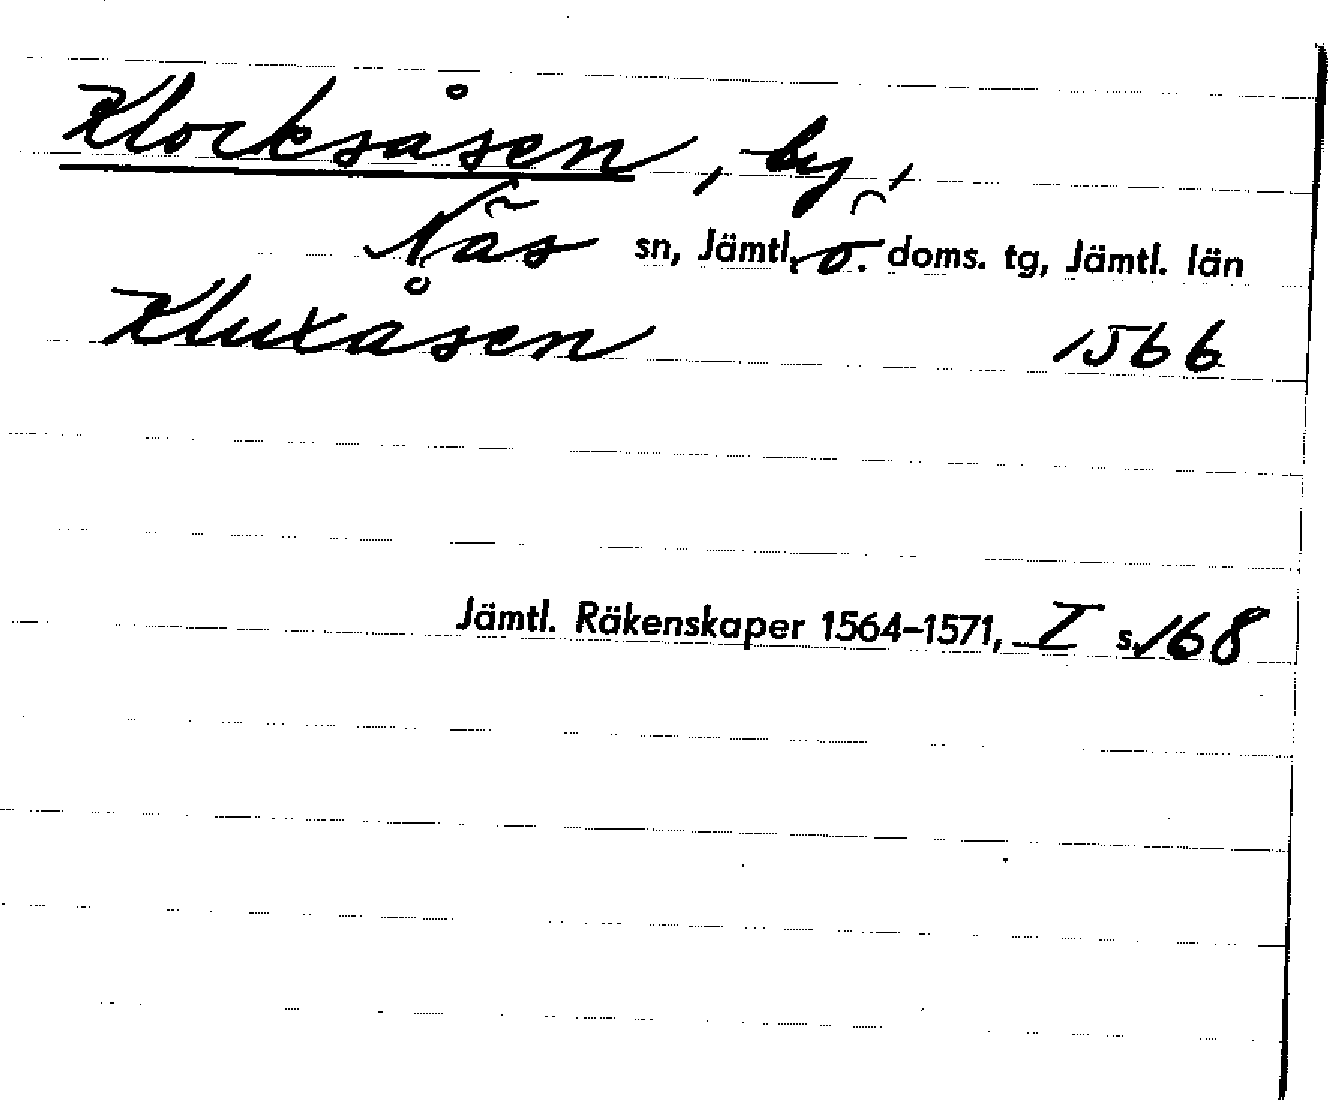 Klocksåsen, by,
Näs sn, Jämtl. ö. doms. tg, Jämtl. län
Kluxåsen 1566
Jämtl. Räkenskaper 1564–1571, I s. 168